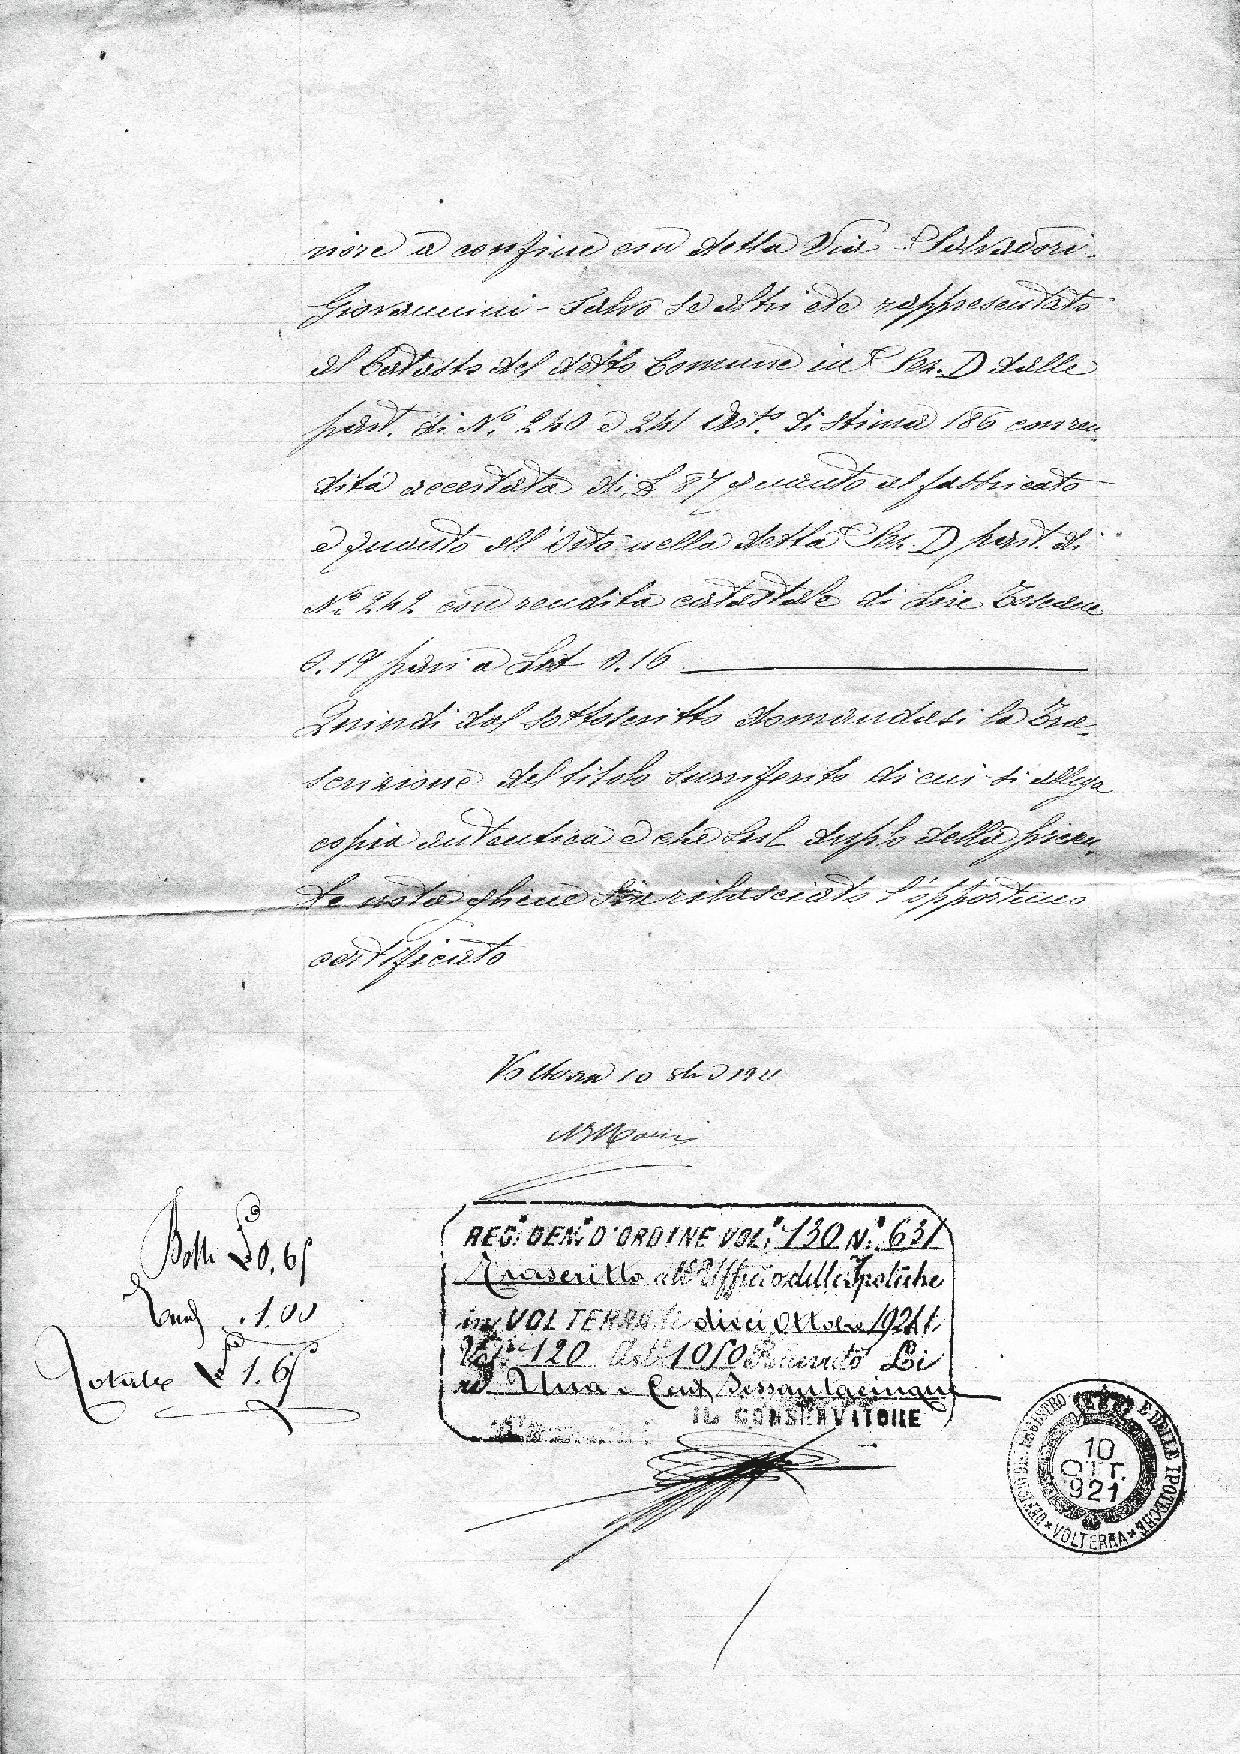 riore a confine con detta Via - Salvadori -
Giovannini - Salvo se altri ete rappresentato
al Catasto del detto Comune in Sez. D dalle
part. di N.º 240 e 241 Art.º di stima 186 con ren-
dita accertata di £ 87 quanto al fabbricato -
e quanto all'Orto nella detta Sez. D part. di
N.º 242 con rendita catastale di Lire Toscane
0.19 pari a Lit 0.16
Quindi dal sottoscritto domandasi la Tra-
scrizione del titolo surriferito di cui si allega
copia autentica e che sul duplo della presen-
te nota gliene sia rilasciato l'opportuno
certificato
Volterra 10 8bre 1921
Bollo £ 0,65
1.00
Totale £ 1.65
REG. GEN. D'ORDINE VOL. 130 N. 631
Trascritto all'Ufficio delle Ipoteche
in VOLTERRA li dieci Ottobre 1921
Vol. 120 Art. 1050 Li
re Una e Cent. Sessantacinque
IL CONSERVATORE
UFFICIO DEL REGISTRO E DELLE IPOTECHE
10
OTT.
921
* VOLTERRA *